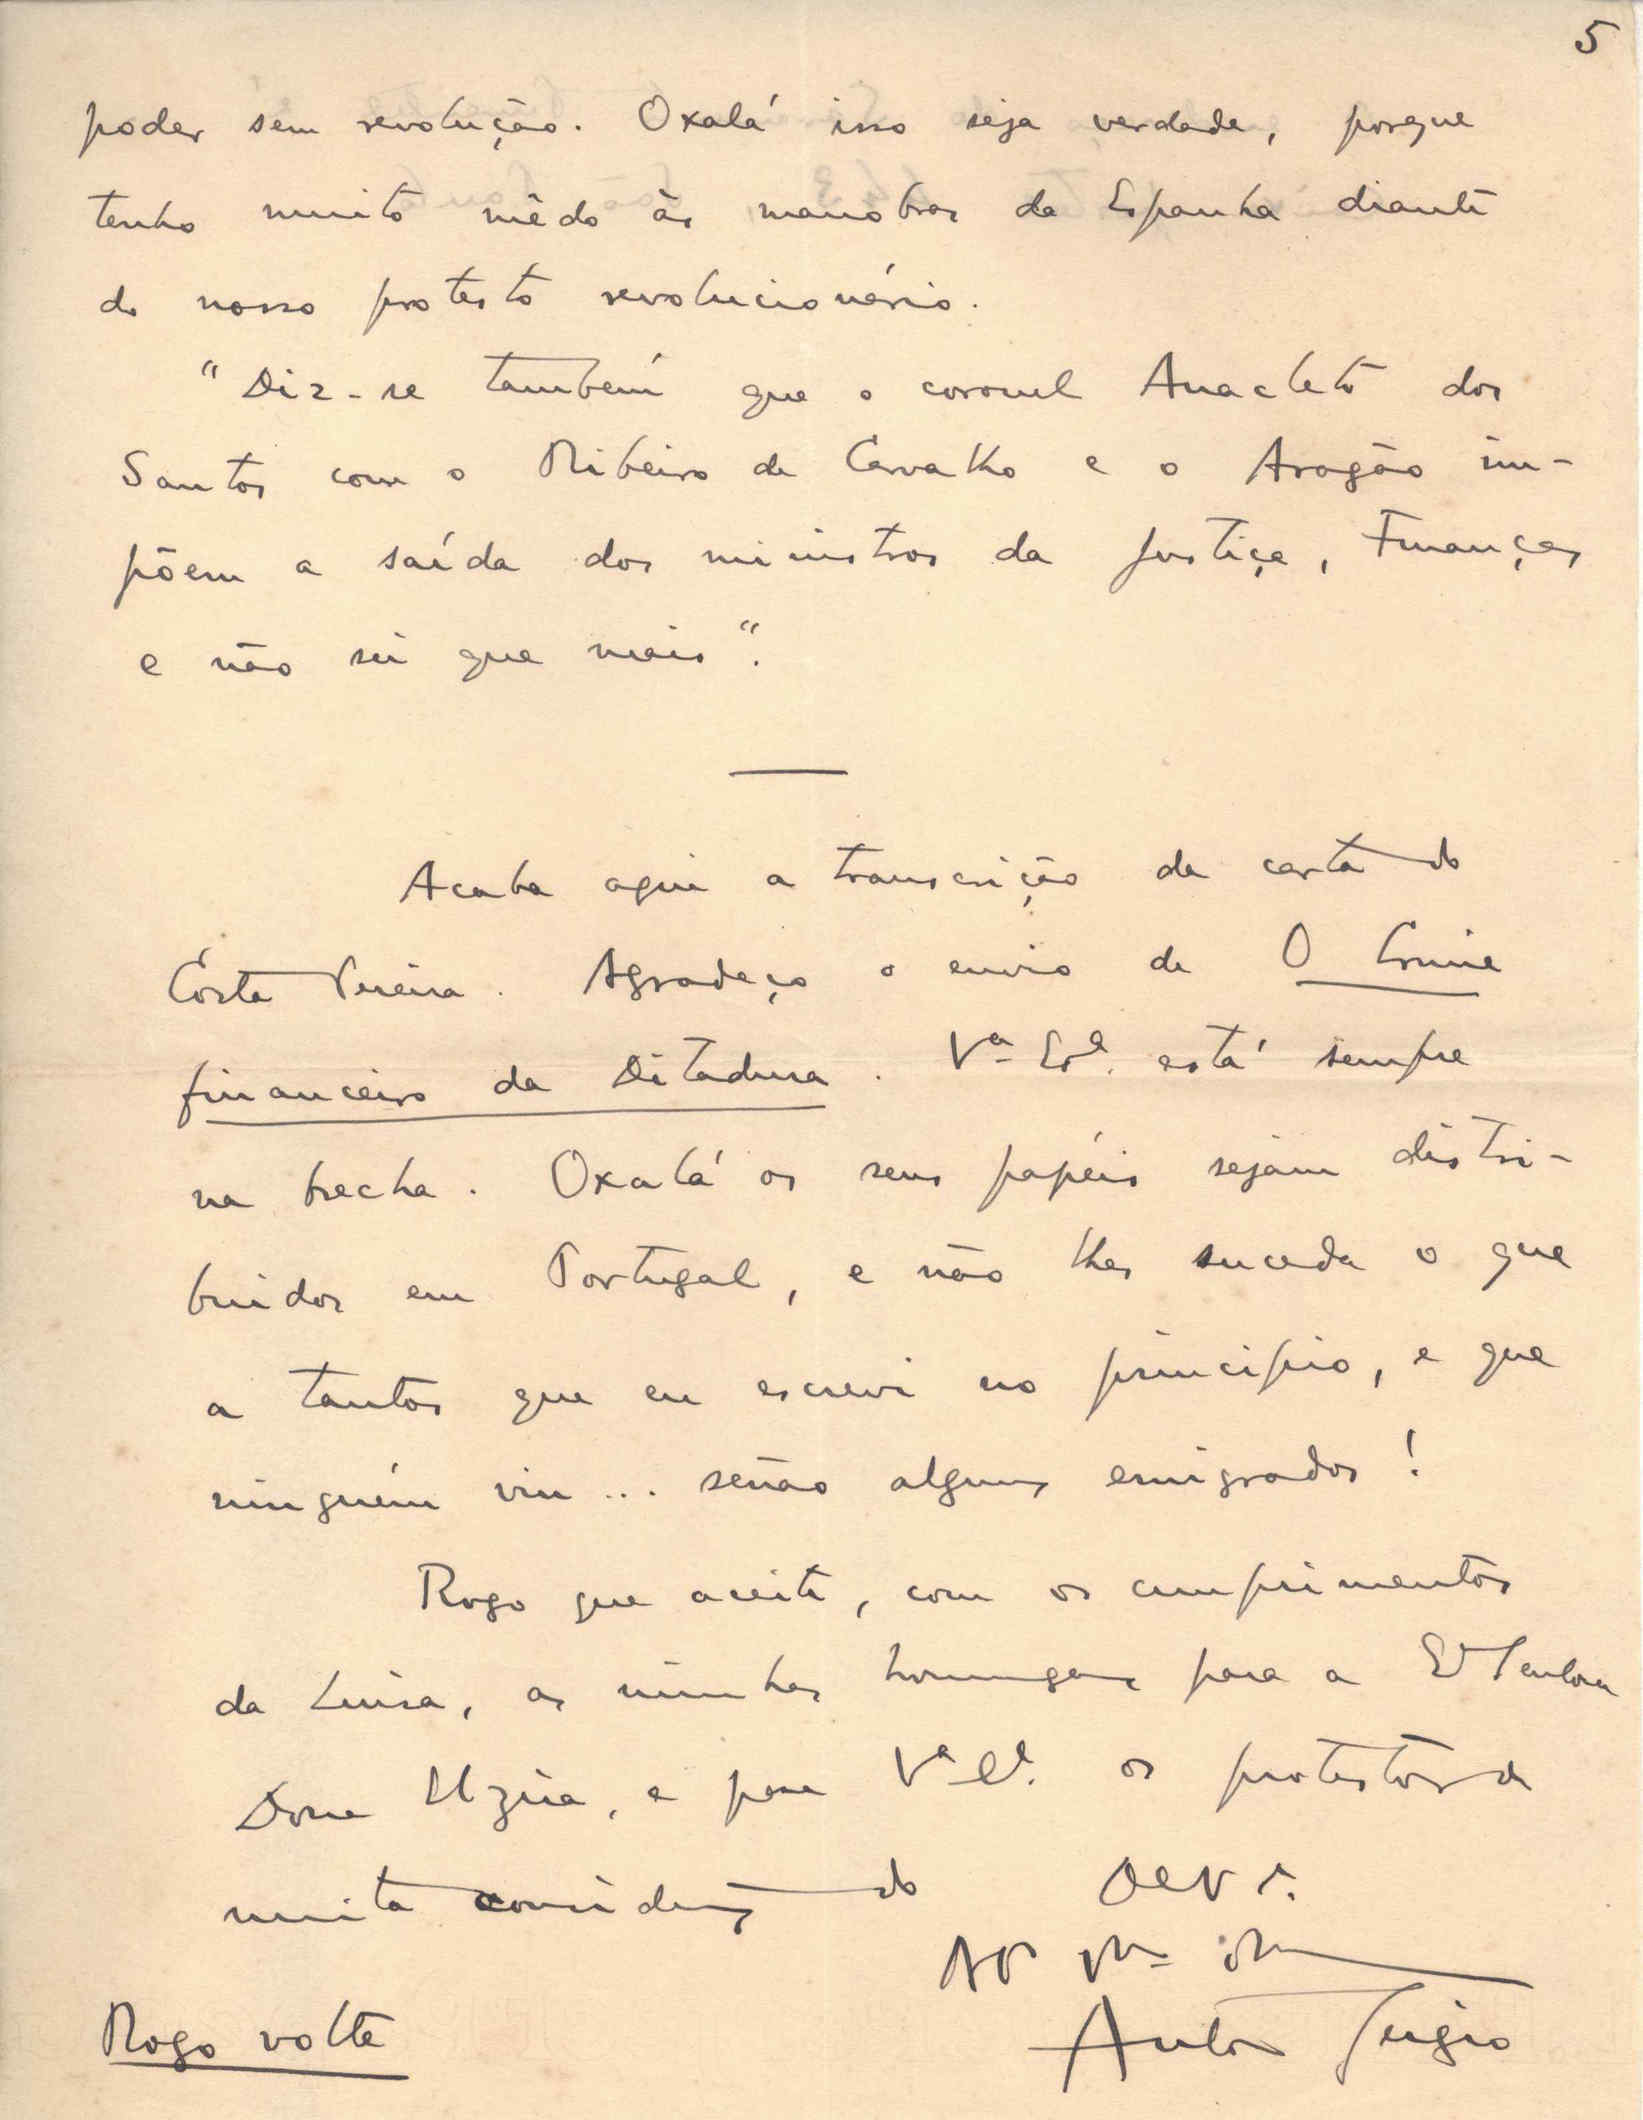 5
poder sem revolução. Oxalá isso seja verdade, porque
tenho muito mêdo às manobras da Espanha diante
do nosso protesto revolucionário.
"Diz-se também que o coronel Anacleto dos
Santos com o Ribeiro de Carvalho e o Aragão im-
põem a saída dos ministros da Justiça, Finanças
e não sei que mais".
Acaba aqui a transcrição da carta do
Costa Pereira. Agradeço o envio de O Crime
financeiro da Ditadura. Vª Exª. está sempre
na brecha. Oxalá os seus papéis sejam distri-
buidos em Portugal, e não lhes suceda o que
a tantos que eu escrevi no princípio, e que
ninguém viu... senão alguns emigrados!
Rogo que aceite, com os cumprimentos
da Luísa, as minhas homenagens para a Srª Senhora
Dona Elzira, e para Vª Eª. os protestos de
muita consideração do
António Sérgio
Rogo volte